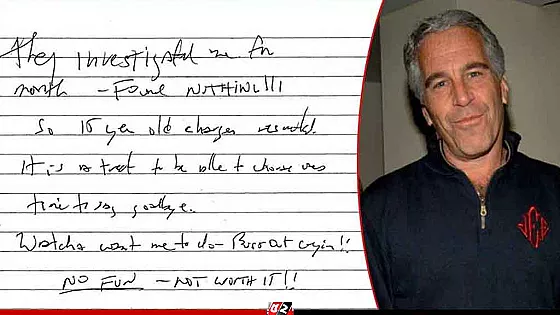 they investigated me for
month — Found NOTHING!!!
So 15 year old charges resulted.
It is a treat to be able to choose ones
time to say goodbye.
Watcha want me to do — Burst out cryin!!
NO FUN — NOT WORTH IT!!